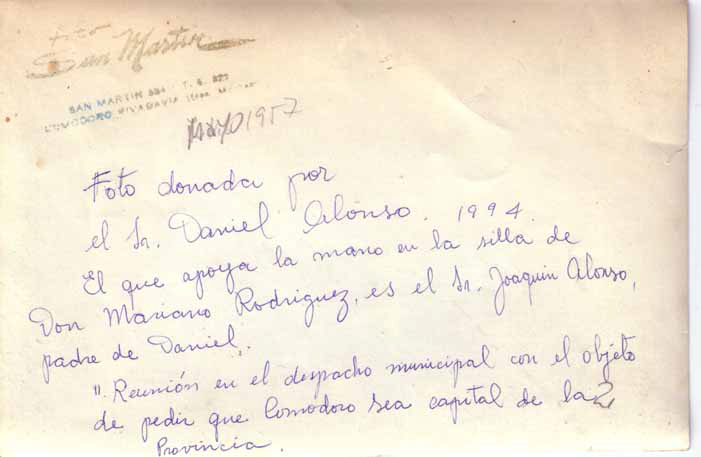 Foto
San Martin
SAN MARTIN 884 T. E. 577
COMODORO RIVADAVIA
MAYO 1957
Foto donada por
el Sr. Daniel Alonso. 1994.
El que apoya la mano en la silla de
Don Mariano Rodriguez, es el Sr. Joaquin Alonso,
padre de Daniel.
"Reunión en el despacho municipal con el objeto
de pedir que Comodoro sea capital de la
Provincia.